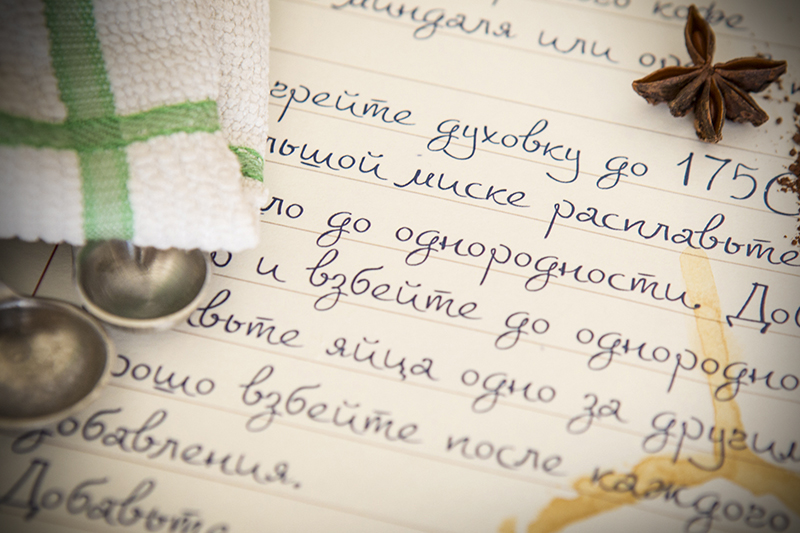 кофе
миндаля или
грейте духовку до 175С
льшой миске расплавьте
ло до однородности. Доб
о и взбейте до однородно
вьте яйца одно за другим
рошо взбейте после каждого
добавления.
Добавьте